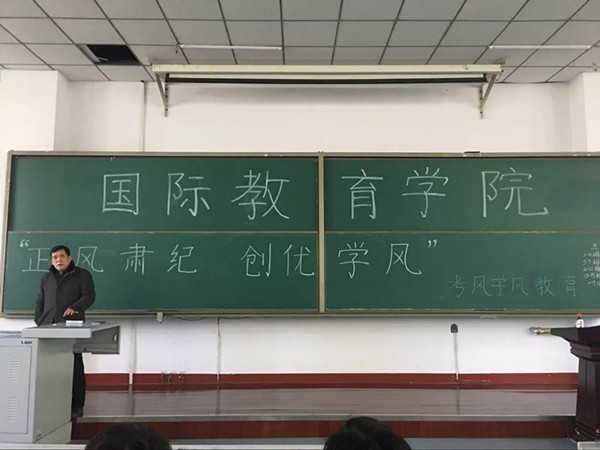 国际教育学院
“正风肃纪 创优学风”
考风学风教育